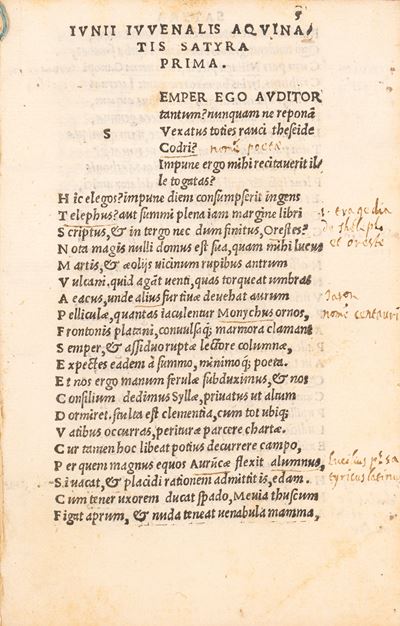 IVNII IVVENALIS AQVINA/
TIS SATYRA
PRIMA.
EMPER EGO AVDITOR
tantum? nunquam ne reponā
S Vexatus toties rauci theseide
Codri? nomē poetæ
Impune ergo mihi recitauerit il/
le togatas?
Hic elegos? impune diem consumpserit ingens
Telephus? aut summi plena iam margine libri
Scriptus, & in tergo nec dum finitus, Orestes?
Nota magis nulli domus est sua, quam mihi lucus
Martis, & æolijs uicinum rupibus antrum
Vulcani. quid agāt uenti, quas torqueat umbras
Aeacus, unde alius furtiuæ deuehat aurum
Pelliculæ, quantas iaculetur Monychus ornos,
Frontonis platani, conuulsaq; marmora clamant
Semper, & assiduo ruptæ lectore columnæ,
Expectes eadem à summo, minimoq; poeta.
Et nos ergo manum ferulæ subduximus, & nos
Consilium dedimus Syllæ, priuatus ut altum
Dormiret. stulta est clementia, cum tot ubiq;
Vatibus occurras, perituræ parcere chartæ.
Cur tamen hoc libeat potius decurrere campo,
Per quem magnus equos Auruncæ flexit alumnus,
Si uacat, & placidi rationem admittitis, edam.
Cum tener uxorem ducat spado, Meuia thuscum
Figat aprum, & nuda teneat uenabula mamma,
tragedia
et oreste
Jason
nomē centauri